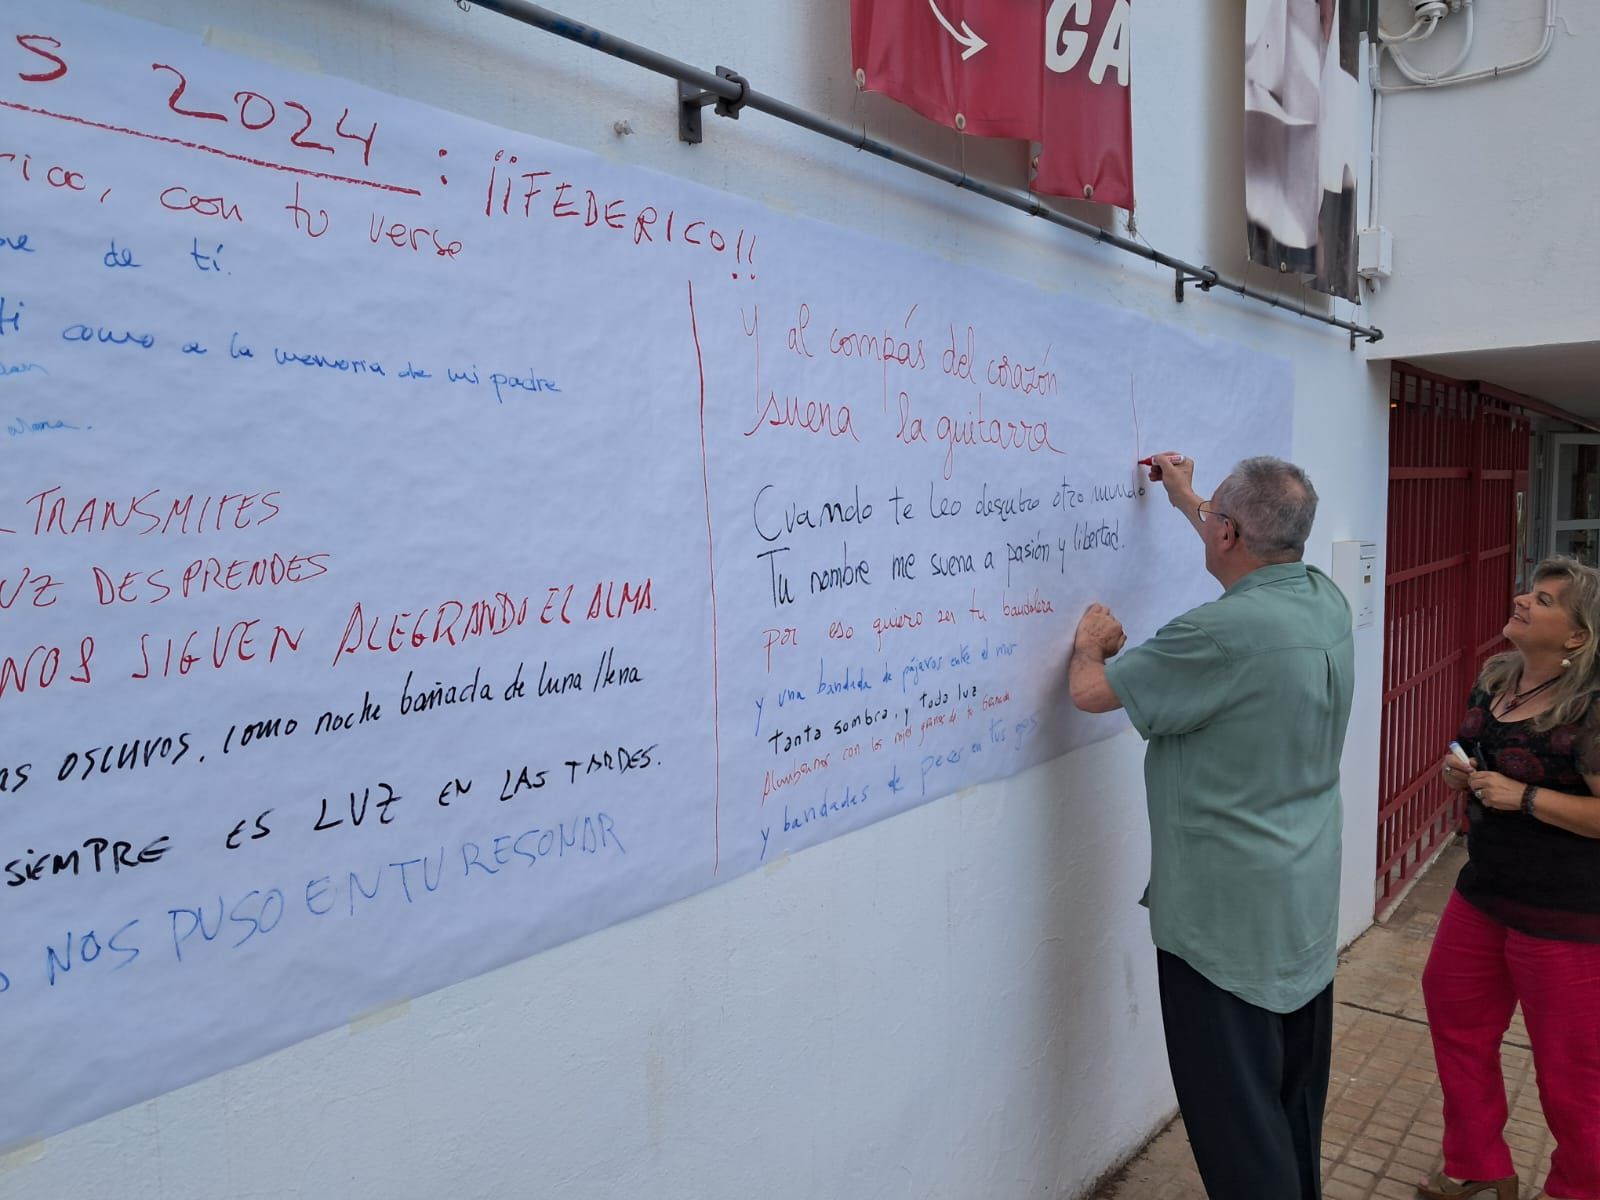 GA
S 2024 : ¡¡FEDERICO!!
rica, con tu verso
de tí.
ti como a la memoria de mi padre
alma.
TRANSMITES
UZ DESPRENDES
NOS SIGUEN ALEGRANDO EL ALMA.
as oscuros, como noche bañada de luna llena
SIEMPRE ES LUZ EN LAS TARDES.
NOS PUSO EN TU RESONAR
Y al compás del corazón
suena la guitarra
Cuando te leo descubro otro mundo
Tu nombre me suena a pasión y libertad.
por eso quiero ser tu bandolera
y una bandada de pájaros entre el mar
tanta sombra, y toda luz
con los rojos granos de tu Granada
y bandadas de peces en tus ojos